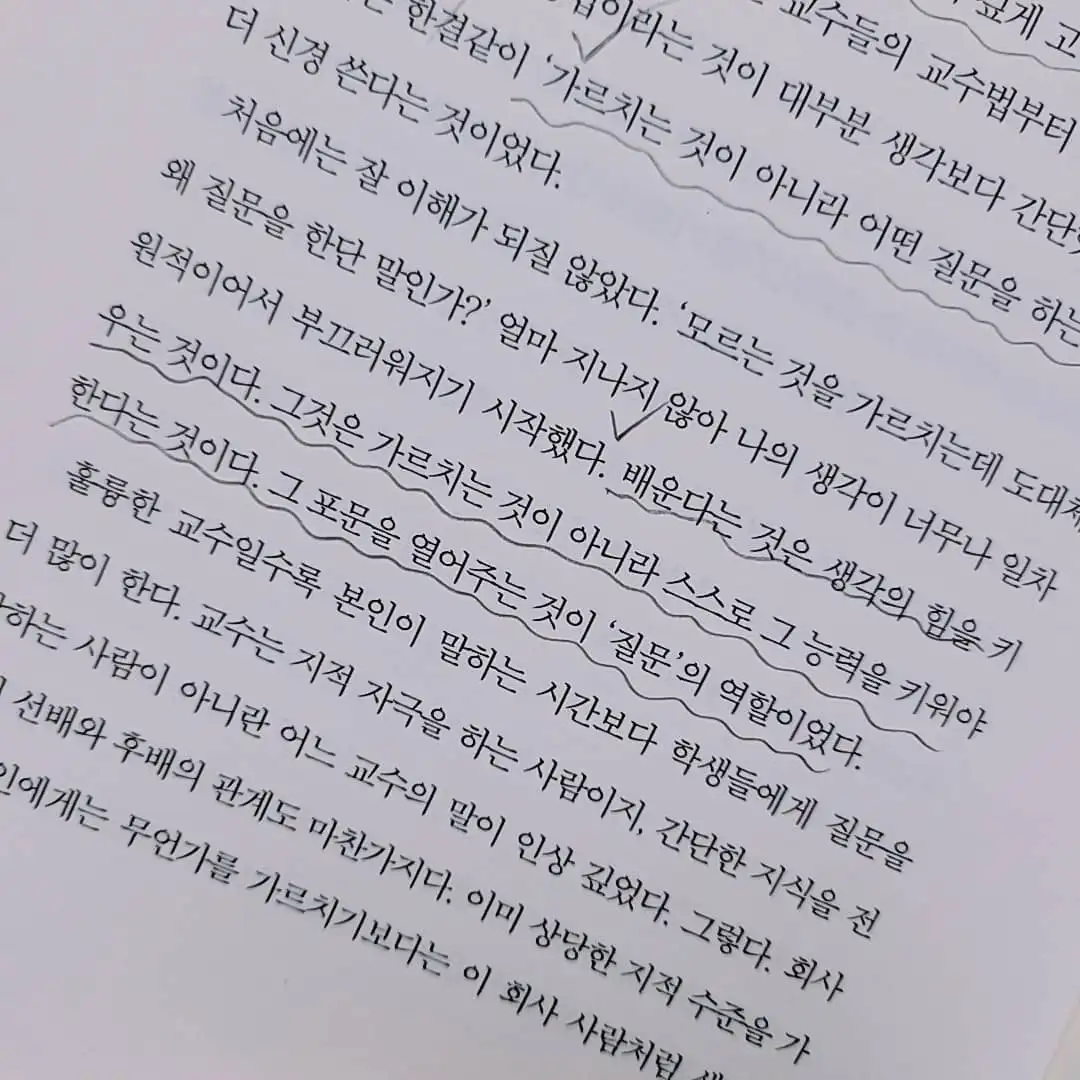 싶게 고
교수들의 교수법부터
이라는 것이 대부분 생각보다
한결같이 '가르치는 것이 아니라 어떤 질문을 하는
더 신경 쓴다는 것이었다.
처음에는 잘 이해가 되질 않았다. '모르는 것을 가르치는데 도대체
왜 질문을 한단 말인가?' 얼마 지나지 않아 나의 생각이 너무나 일차
원적이어서 부끄러워지기 시작했다. 배운다는 것은 생각의 힘을 키
우는 것이다. 그것은 가르치는 것이 아니라 스스로 그 능력을 키워야
한다는 것이다. 그 포문을 열어주는 것이 '질문'의 역할이었다.
훌륭한 교수일수록 본인이 말하는 시간보다 학생들에게 질문을
더 많이 한다. 교수는 지적 자극을 하는 사람이지, 간단한 지식을 전
하는 사람이 아니란 어느 교수의 말이 인상 깊었다. 그렇다. 회사
선배와 후배의 관계도 마찬가지다. 이미 상당한 지적 수준을 가
인에게는 무언가를 가르치기보다는 이 회사 사람처럼